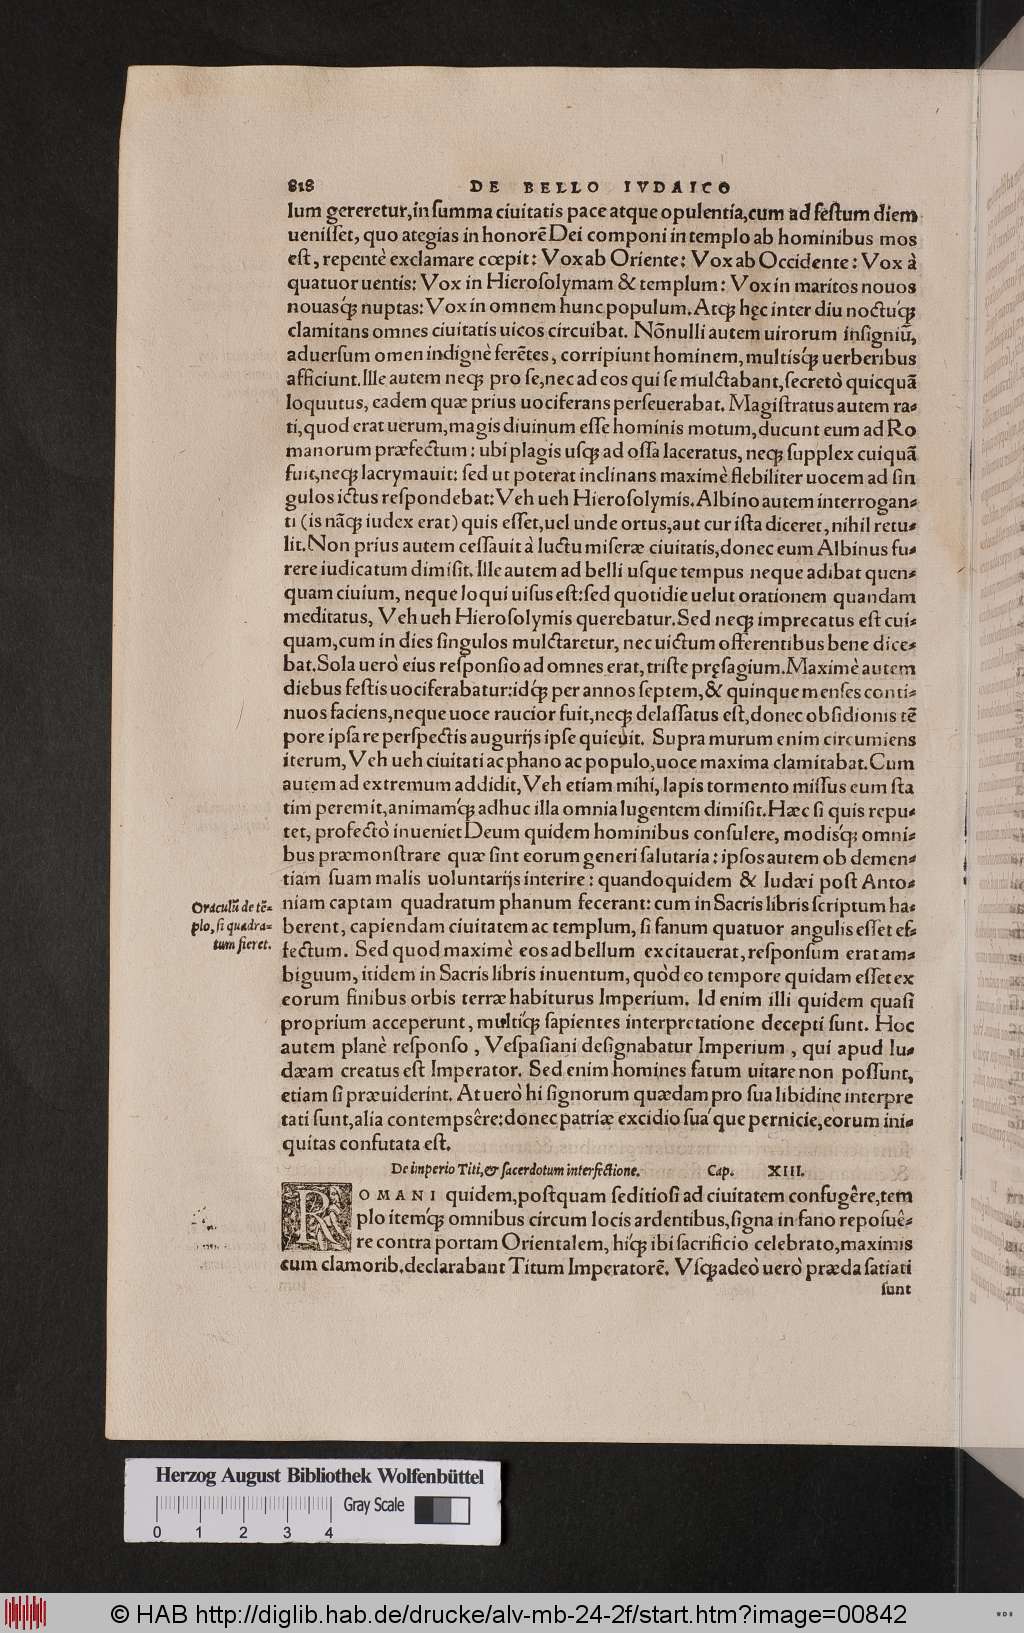 818 DE BELLO IVDAICO
lum gereretur, in ſumma ciuitatis pace atque opulentia, cum ad feſtum diem
ueniſſet, quo ategias in honorē Dei componi in templo ab hominibus mos
eſt, repentè exclamare cœpit: Vox ab Oriente: Vox ab Occidente: Vox à
quatuor uentis: Vox in Hieroſolymam & templum: Vox in maritos nouos
nouasq́; nuptas: Vox in omnem hunc populum. Atq; hęc inter diu noctuq́;
clamitans omnes ciuitatis uicos circuibat. Nōnulli autem uirorum inſigniū,
aduerſum omen indignè ferētes, corripiunt hominem, multisq́; uerberibus
afficiunt. Ille autem neq; pro ſe, nec ad eos qui ſe mulctabant, ſecretò quicquā
loquutus, eadem quæ prius uociferans perſeuerabat. Magiſtratus autem ra-
ti, quod erat uerum, magis diuinum eſſe hominis motum, ducunt eum ad Ro
manorum præfectum: ubi plagis uſq; ad oſſa laceratus, neq; ſupplex cuiquā
fuit, neq; lacrymauit: ſed ut poterat inclinans maximè flebiliter uocem ad ſin
gulos ictus reſpondebat: Veh ueh Hieroſolymis. Albino autem interrogan-
ti (is nāq; iudex erat) quis eſſet, uel unde ortus, aut cur iſta diceret, nihil retu-
lit. Non prius autem ceſſauit à luctu miſeræ ciuitatis, donec eum Albinus fu-
rere iudicatum dimiſit. Ille autem ad belli uſque tempus neque adibat quen-
quam ciuium, neque loqui uiſus eſt: ſed quotidie uelut orationem quandam
meditatus, Veh ueh Hieroſolymis querebatur. Sed neq; imprecatus eſt cui-
quam, cum in dies ſingulos mulctaretur, nec uictum offerentibus bene dice-
bat. Sola uerò eius reſponſio ad omnes erat, triſte pręſagium. Maximè autem
diebus feſtis uociferabatur: idq́; per annos ſeptem, & quinque menſes conti-
nuos faciens, neque uoce raucior fuit, neq; delaſſatus eſt, donec obſidionis tē
pore ipſa re perſpectis augurijs ipſe quieuit. Supra murum enim circumiens
iterum, Veh ueh ciuitati ac phano ac populo, uoce maxima clamitabat. Cum
autem ad extremum addidit, Veh etiam mihi, lapis tormento miſſus eum ſta
tim peremit, animamq́; adhuc illa omnia lugentem dimiſit. Hæc ſi quis repu-
tet, profectò inueniet Deum quidem hominibus conſulere, modisq́; omni-
bus præmonſtrare quæ ſint eorum generi ſalutaria: ipſos autem ob demen-
tiam ſuam malis uoluntarijs interire: quandoquidem & Iudæi poſt Anto-
niam captam quadratum phanum fecerant: cum in Sacris libris ſcriptum ha-
berent, capiendam ciuitatem ac templum, ſi fanum quatuor angulis eſſet ef-
fectum. Sed quod maximè eos ad bellum excitauerat, reſponſum erat am-
biguum, itidem in Sacris libris inuentum, quòd eo tempore quidam eſſet ex
eorum finibus orbis terræ habiturus Imperium. Id enim illi quidem quaſi
proprium acceperunt, multiq́; ſapientes interpretatione decepti ſunt. Hoc
autem planè reſponſo, Veſpaſiani deſignabatur Imperium, qui apud Iu-
dæam creatus eſt Imperator. Sed enim homines fatum uitare non poſſunt,
etiam ſi præuiderint. At uerò hi ſignorum quædam pro ſua libidine interpre
tati ſunt, alia contempsêre: donec patriæ excidio ſuáque pernicie, eorum ini-
quitas confutata eſt.
Oraculū de tē-
plo, ſi quadra-
tum fieret.
De imperio Titi, & ſacerdotum interfectione. Cap. XIII.
ROMANI quidem, poſtquam ſeditioſi ad ciuitatem confugêre, tem
plo itemq́; omnibus circum locis ardentibus, ſigna in fano repoſuê-
re contra portam Orientalem, hiq́; ibi ſacrificio celebrato, maximis
cum clamorib. declarabant Titum Imperatorē. Vſq; adeò uerò præda ſatiati
ſunt
Herzog August Bibliothek Wolfenbüttel
Gray Scale
0 1 2 3 4
© HAB http://diglib.hab.de/drucke/alv-mb-24-2f/start.htm?image=00842